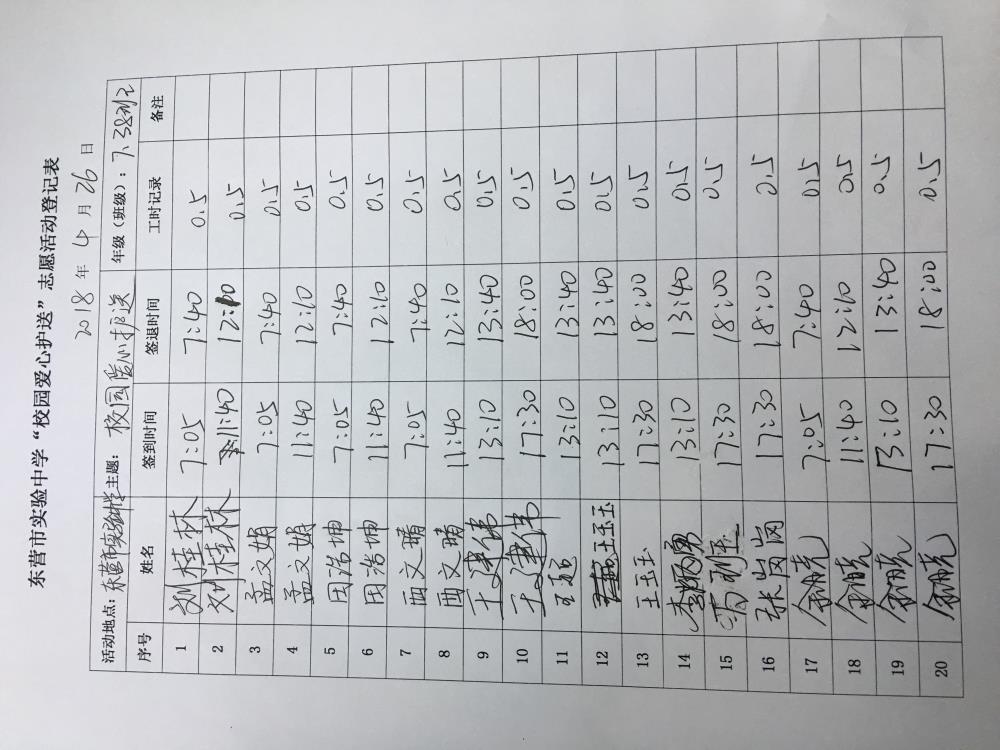 东营市实验中学“校园爱心护送”志愿活动登记表
2018 年 4 月 26 日
活动地点：东营市实验中学 主题： 校园爱心护送 年级（班级）：7.38
序号 姓名 签到时间 签退时间 工时记录 备注
1 刘桂林 7:05 7:40 0.5
2 刘桂林 11:40 12:10 0.5
3 孟文娟 7:05 7:40 0.5
4 孟文娟 11:40 12:10 0.5
5 田浩坤 7:05 7:40 0.5
6 田浩坤 11:40 12:10 0.5
7 西文晴 7:05 7:40 0.5
8 西文晴 11:40 12:10 0.5
9 王建伟 13:10 13:40 0.5
10 王建伟 17:30 18:00 0.5
11 王超 13:10 13:40 0.5
12 王玉玉 13:10 13:40 0.5
13 王玉玉 17:30 18:00 0.5
14 13:10 13:40 0.5
15 17:30 18:00 0.5
16 张岗岗 17:30 18:00 0.5
17 7:05 7:40 0.5
18 11:40 12:10 0.5
19 13:10 13:40 0.5
20 17:30 18:00 0.5